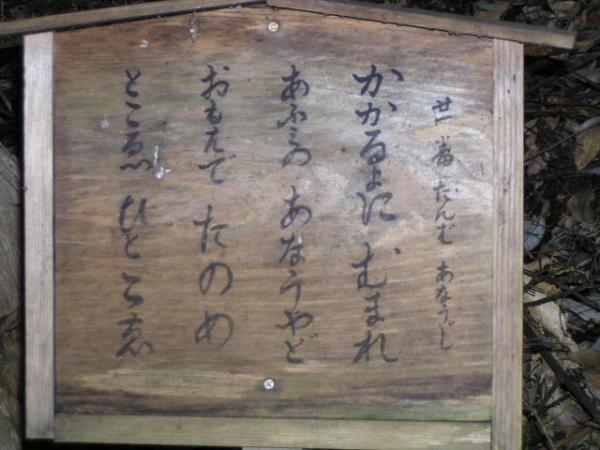 廿一番 たんば あなうじ
かかるよに むまれ
あふみの あなうやど
おもはで たのめ
とこゑ ひとこゑ